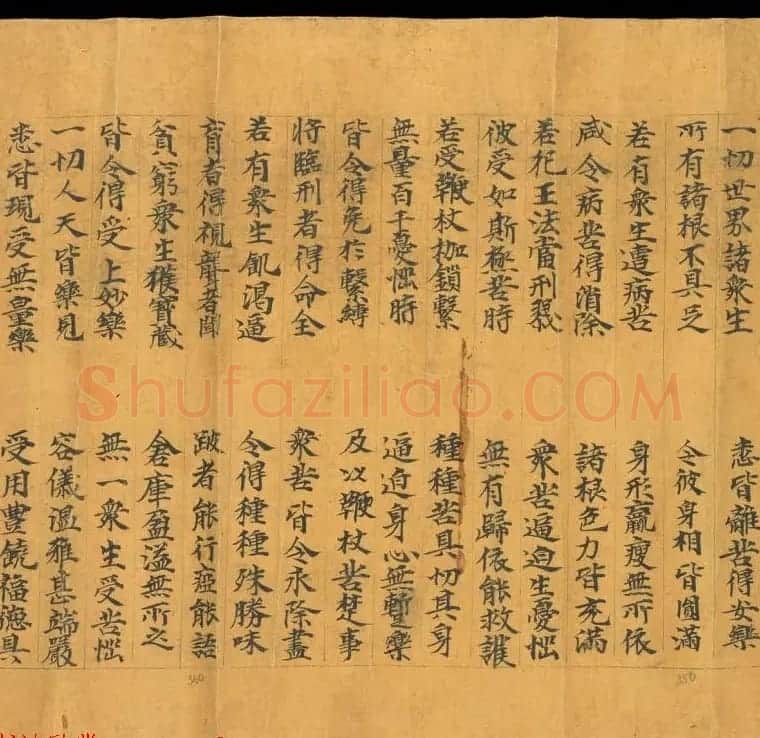 一切世界諸衆生 悉皆離苦得安樂
所有諸根不具足 令彼身相皆圓滿
若有衆生遭病苦 身形羸瘦無所依
咸令病苦得消除 諸根色力皆充滿
若犯王法當刑戮 衆苦逼迫生憂惱
彼受如斯極苦時 無有歸依能救護
若受鞭杖枷鎖繫 種種苦具切其身
無量百千憂惱時 逼迫身心無暫樂
皆令得免於繫縛 及以鞭杖苦楚事
將臨刑者得命全 衆苦皆令永除盡
若有衆生飢渴逼 令得種種殊勝味
盲者得視聾者聞 跛者能行瘂能語
貧窮衆生獲寶藏 倉庫盈溢無所乏
皆令得受上妙樂 無一衆生受苦惱
一切人天皆樂見 容儀溫雅甚端嚴
悉皆現受無量樂 受用豐饒福德具
Shufaziliao.COM
350
360